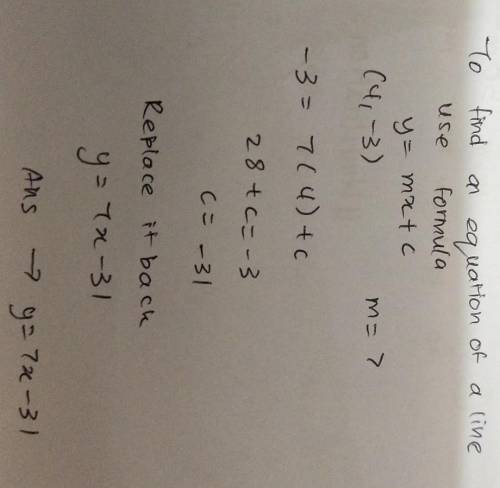 To find an equation of a line
use formula
y = mx + c
(4, -3) m = 7
-3 = 7(4) + c
28 + c = -3
c = -31
Replace it back
y = 7x - 31
Ans → y = 7x - 31